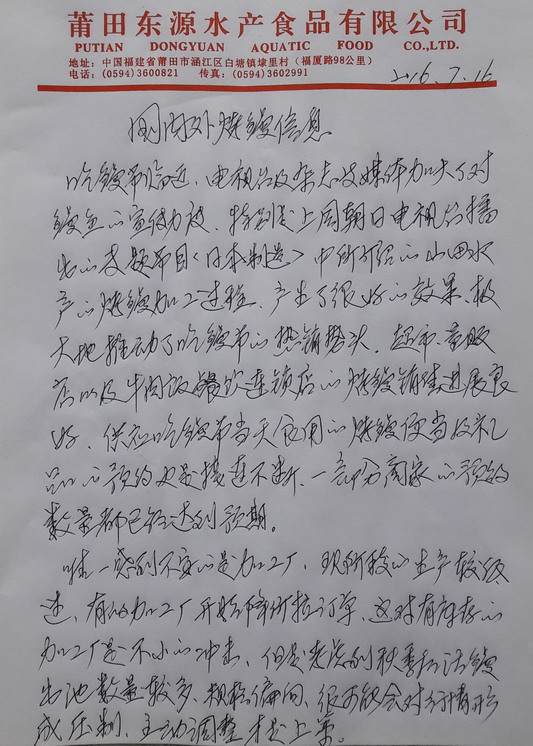 莆田东源水产食品有限公司
PUTIAN DONGYUAN AQUATIC FOOD CO.,LTD.
地址：中国福建省莆田市涵江区白塘镇埭里村（福厦路98公里）
电话：(0594)3600821 传真：(0594)3602991
2016.7.16
国内外烤鳗信息
吃鳗节临近，电视台及杂志及媒体加大了对
鳗鱼的宣传力度，特别是上周朝日电视台播
出的专题节目《日本制造》中所介绍的山田水
产的烤鳗加工过程，产生了很好的效果，极
大地推动了吃鳗节的热销势头。超市、量贩
店以及牛肉饭餐饮连锁店的烤鳗销售进展良
好，供应吃鳗节当天食用的烤鳗便当及礼
品的预约也是接连不断，一部分商家的预约
数量都已经达到预期。
唯一感到不安的是加工厂，现阶段的生产较缓
进，有的加工厂开始降价拉订单，这对有库存的
加工厂是不小的冲击，但是考虑到秋季和活鳗
出池数量较多、规格偏向，很可能会对行情形
成压制，主动调整才是上策。